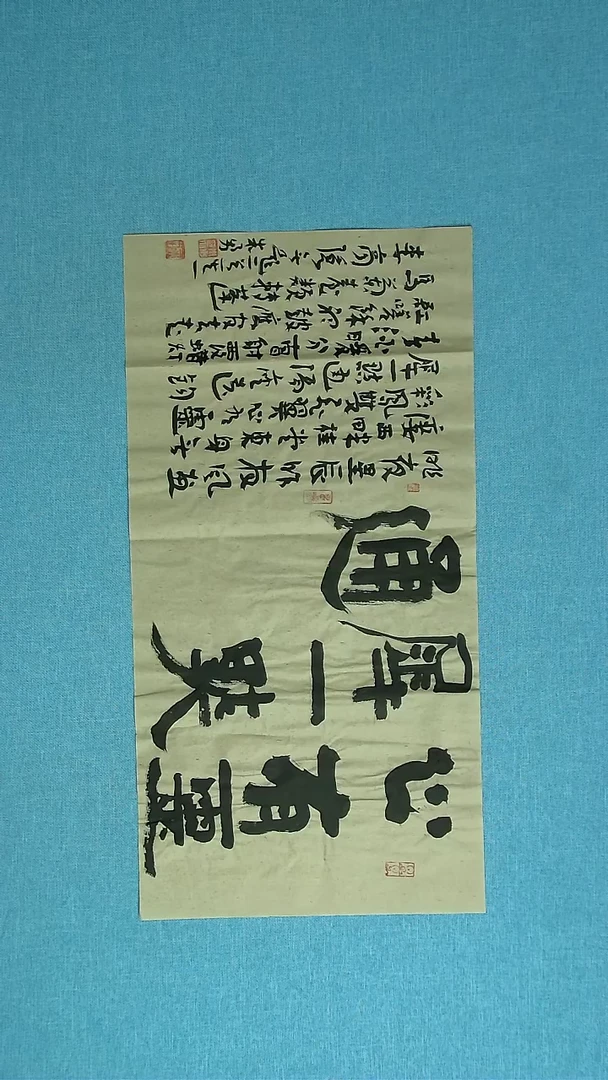 心有靈
犀一點
通
昨夜星辰昨夜風畫
樓西畔桂堂東身無
彩鳳雙飛翼心有靈
犀一點通隔座送鈎
春酒暖分曹射覆蠟燈
紅嗟余聽鼓應官去走
馬蘭臺類轉蓬
李商隱